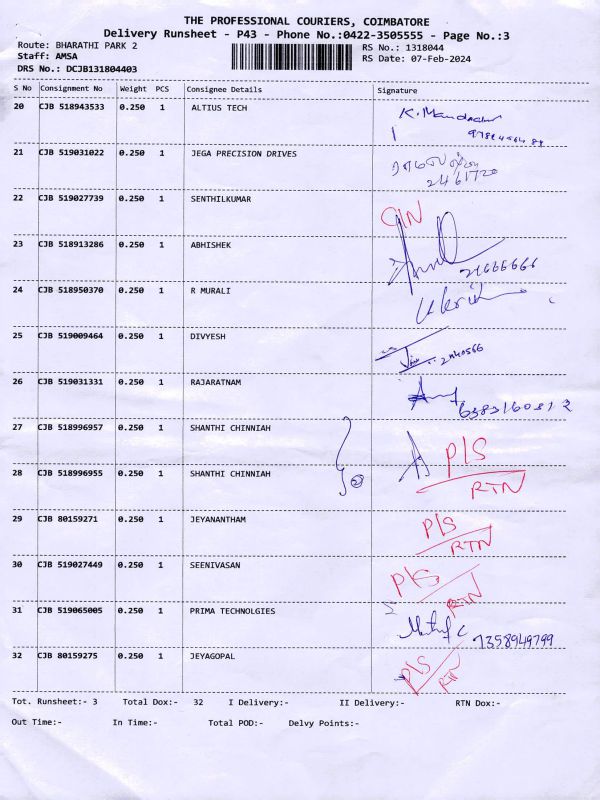 THE PROFESSIONAL COURIERS, COIMBATORE
Delivery Runsheet - P43 - Phone No.:0422-3505555 - Page No.:3
Route: BHARATHI PARK 2 RS No.: 1318044
Staff: AMSA RS Date: 07-Feb-2024
DRS No.: DCJB131804403
S No Consignment No Weight PCS Consignee Details Signature
20 CJB 518943533 0.250 1 ALTIUS TECH
21 CJB 519031022 0.250 1 JEGA PRECISION DRIVES
2461720
22 CJB 519027739 0.250 1 SENTHILKUMAR
23 CJB 518913286 0.250 1 ABHISHEK
24 CJB 518950370 0.250 1 R MURALI
25 CJB 519009464 0.250 1 DIVYESH
26 CJB 519031331 0.250 1 RAJARATNAM
27 CJB 518996957 0.250 1 SHANTHI CHINNIAH
P/S
28 CJB 518996955 0.250 1 SHANTHI CHINNIAH
2 RTN
29 CJB 80159271 0.250 1 JEYANANTHAM
P/S
RTN
30 CJB 519027449 0.250 1 SEENIVASAN
P/S
RTN
31 CJB 519065005 0.250 1 PRIMA TECHNOLGIES
7358949799
32 CJB 80159275 0.250 1 JEYAGOPAL
P/S
RTN
Tot. Runsheet:- 3 Total Dox:- 32 I Delivery:- II Delivery:- RTN Dox:-
Out Time:- In Time:- Total POD:- Delvy Points:-